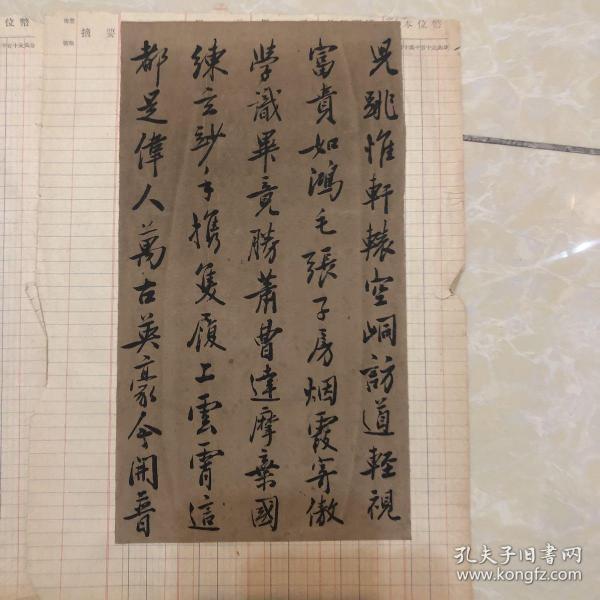 惟軒轅空峒訪道輕視
富貴如鴻毛張子房烟霞寄傲
學識畢竟勝蕭曹達摩棄國
練玄妙手携隻履上雲霄這
都是偉人萬古英豪今開普
幣位本
摘要
幣位
孔夫子旧書网
www.kongfz.com